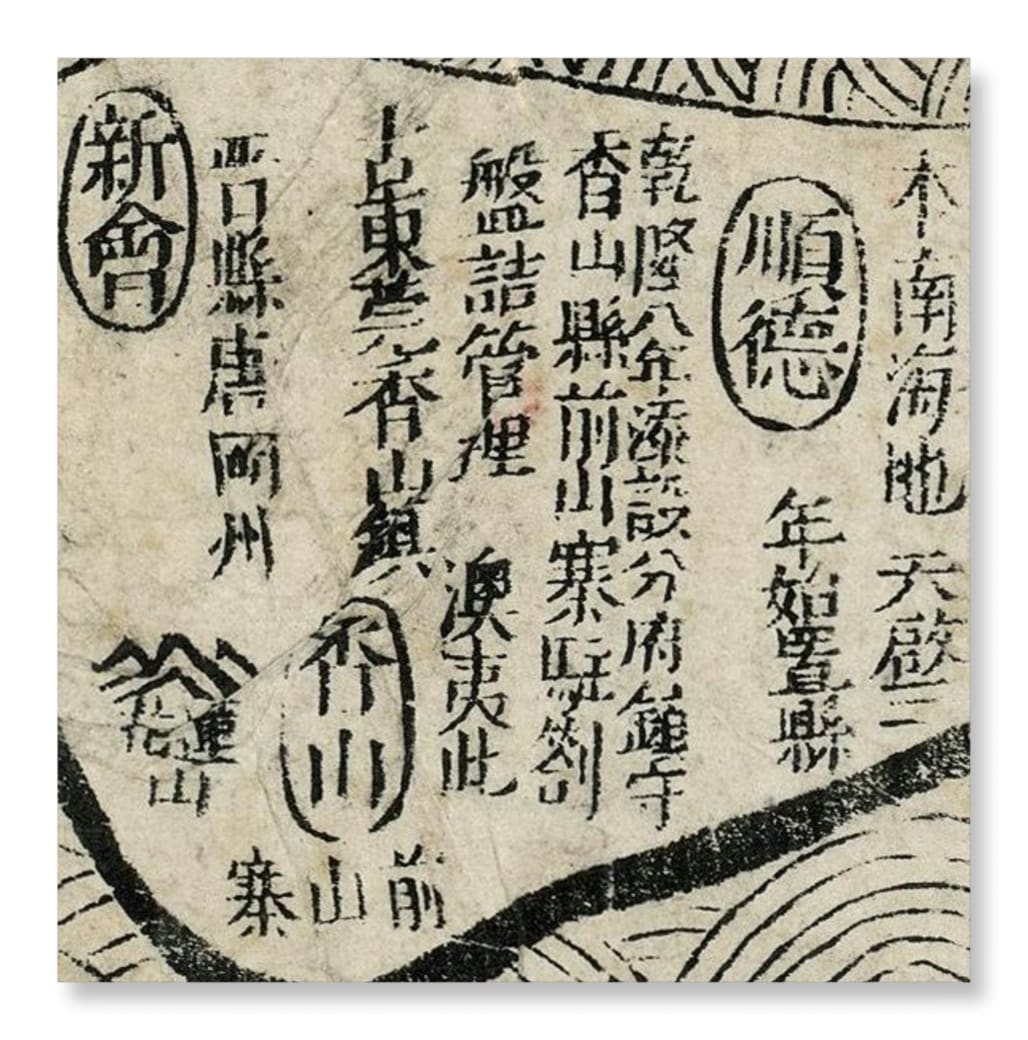 本南海地 天啓三
順德
年始置縣
乾隆八年添設分府鎮守
香山縣前山寨駐劄
盤詰管理 澳夷此
古東莞香山鎮
香山
前山寨
縣唐岡州
蓮花山
新會